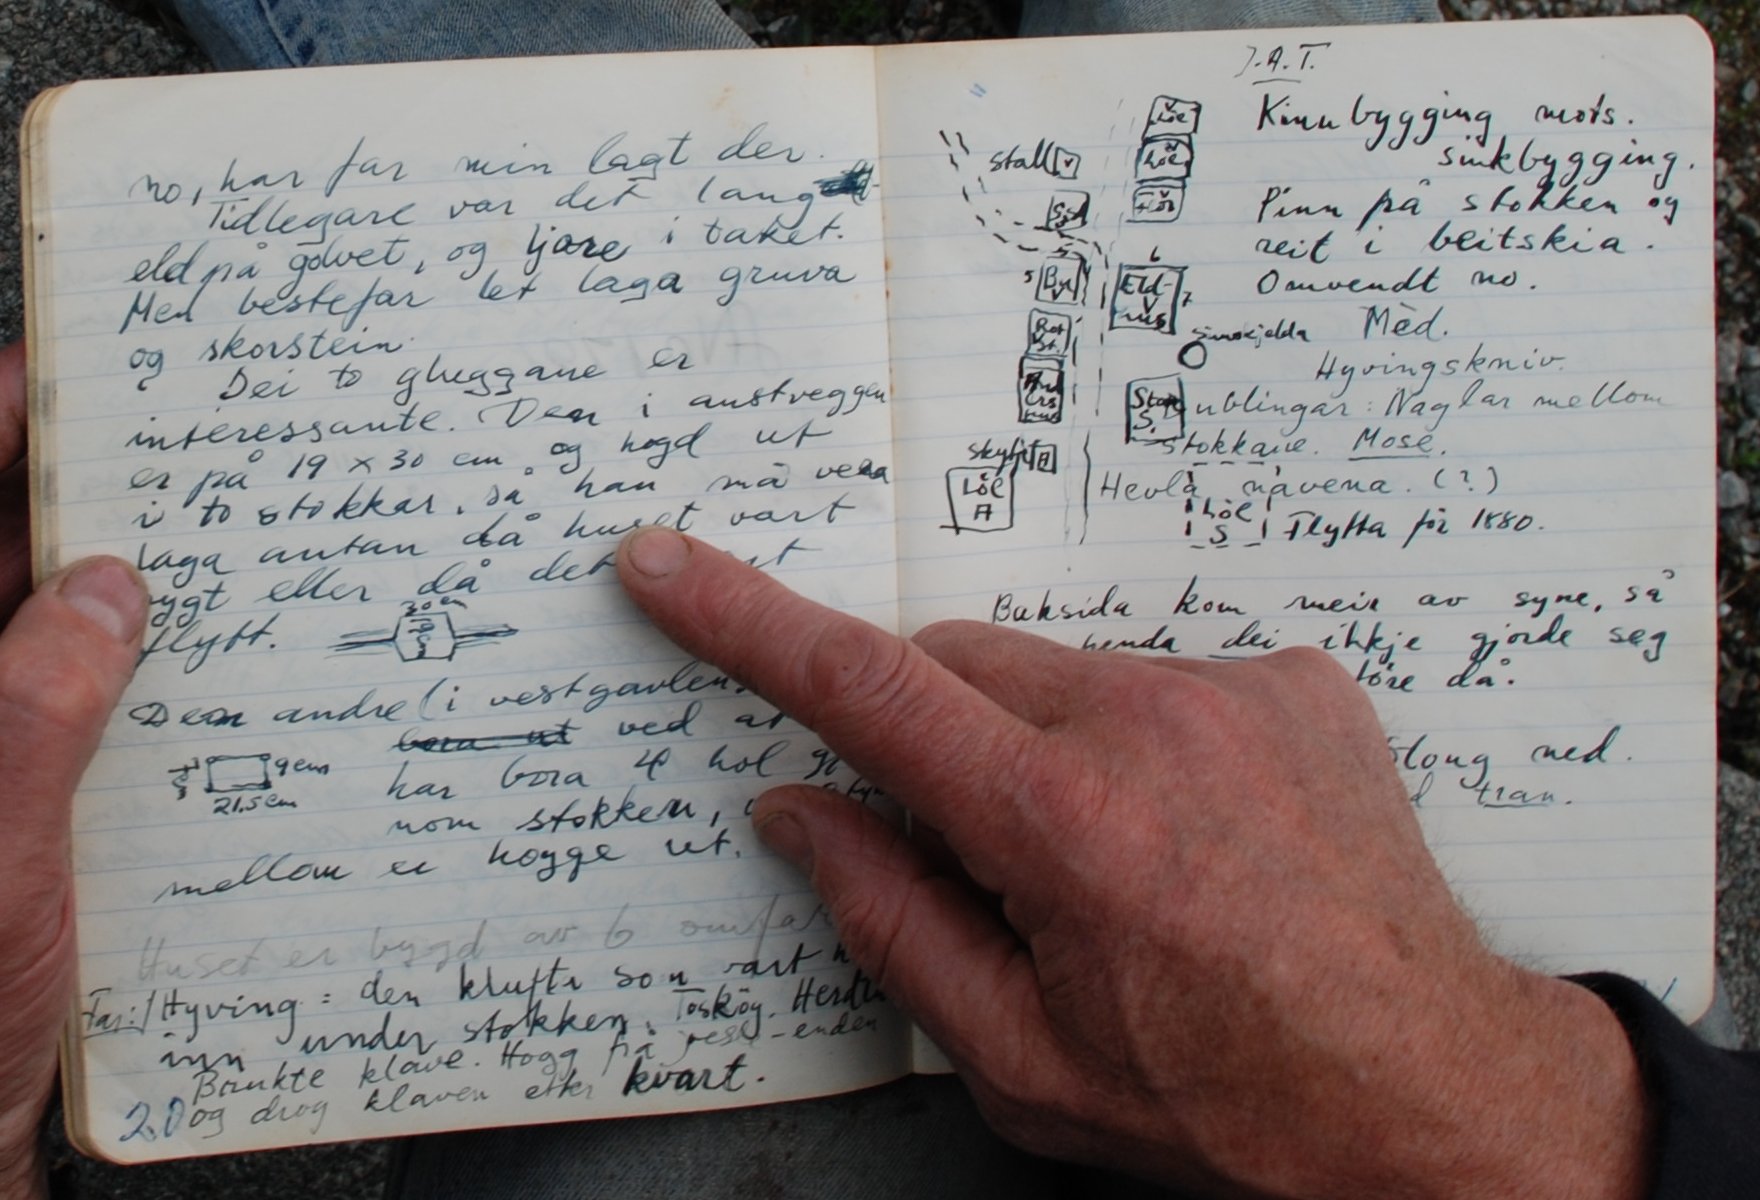 no, har far min lagt der.
Tidlegare var det lang
eld på golvet, og ljore i taket.
Men bestefar let laga gruva
og skorstein.
Dei to gluggane er
interessante. Den i austveggen
er på 19 x 30 cm og hogd ut
i to stokkar, så han må vera
laga antan då huset vart
bygt eller då det
flytt.
30 cm
19
Den andre (i vestgavlen
bora ut ved at
9 cm
21.5 cm
har bora 4 hol gj
nom stokken,
mellom er hogge ut.
Huset er bygd av 6 omfar
Far:/ Hyving = den klufti som vart
inn under stokken. Toskög.
Brukte klave. Hogg frå -enden
og drog klaven etter kvart.
20
J.A.T.
Kinnbygging mots.
sinkbygging.
Pinn på stokken og
reit i beitskia.
Omvendt no.
Mèd.
Hyvingskniv.
ublingar: Naglar mellom
stokkane. Mose.
Hevla návena. (?)
Flytta för 1880.
Stall V
Löe
V
Löe
V
5
6
Eld-
V
hus
7
Löe
A
Löe
S
Baksida kom meir av syne, så
henda dei ikkje gjorde seg
føre då.
slong ned.
tran.